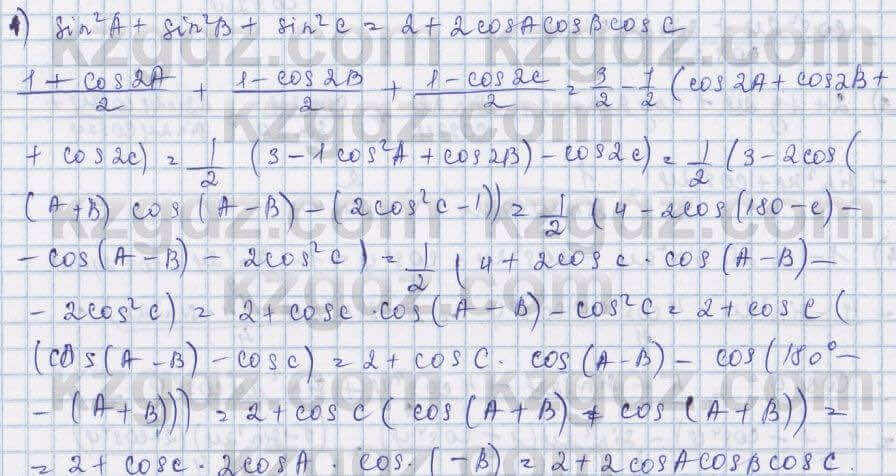 1) sin²A + sin²B + sin²C = 2 + 2cosAcosBcosC
(1 + cos2A)/2 + (1 - cos2B)/2 + (1 - cos2C)/2 = 3/2 - 1/2 (cos2A + cos2B +
+ cos2C) = 1/2 (3 - 1cos²A + cos2B) - cos2C) = 1/2 (3 - 2cos(
(A+B) cos(A-B) - (2cos²C - 1)) = 1/2 (4 - 2cos(180-C) -
- cos(A-B) - 2cos²C) = 1/2 (4 + 2cosC · cos(A-B) -
- 2cos²C) = 2 + cosC · cos(A-B) - cos²C = 2 + cosC (
(cos(A-B) - cosC) = 2 + cosC · cos(A-B) - cos(180° -
- (A+B))) = 2 + cosC (cos(A+B) + cos(A+B)) =
= 2 + cosC · 2cosA · cos · (-B) = 2 + 2cosAcosBcosC
kzgdz.com